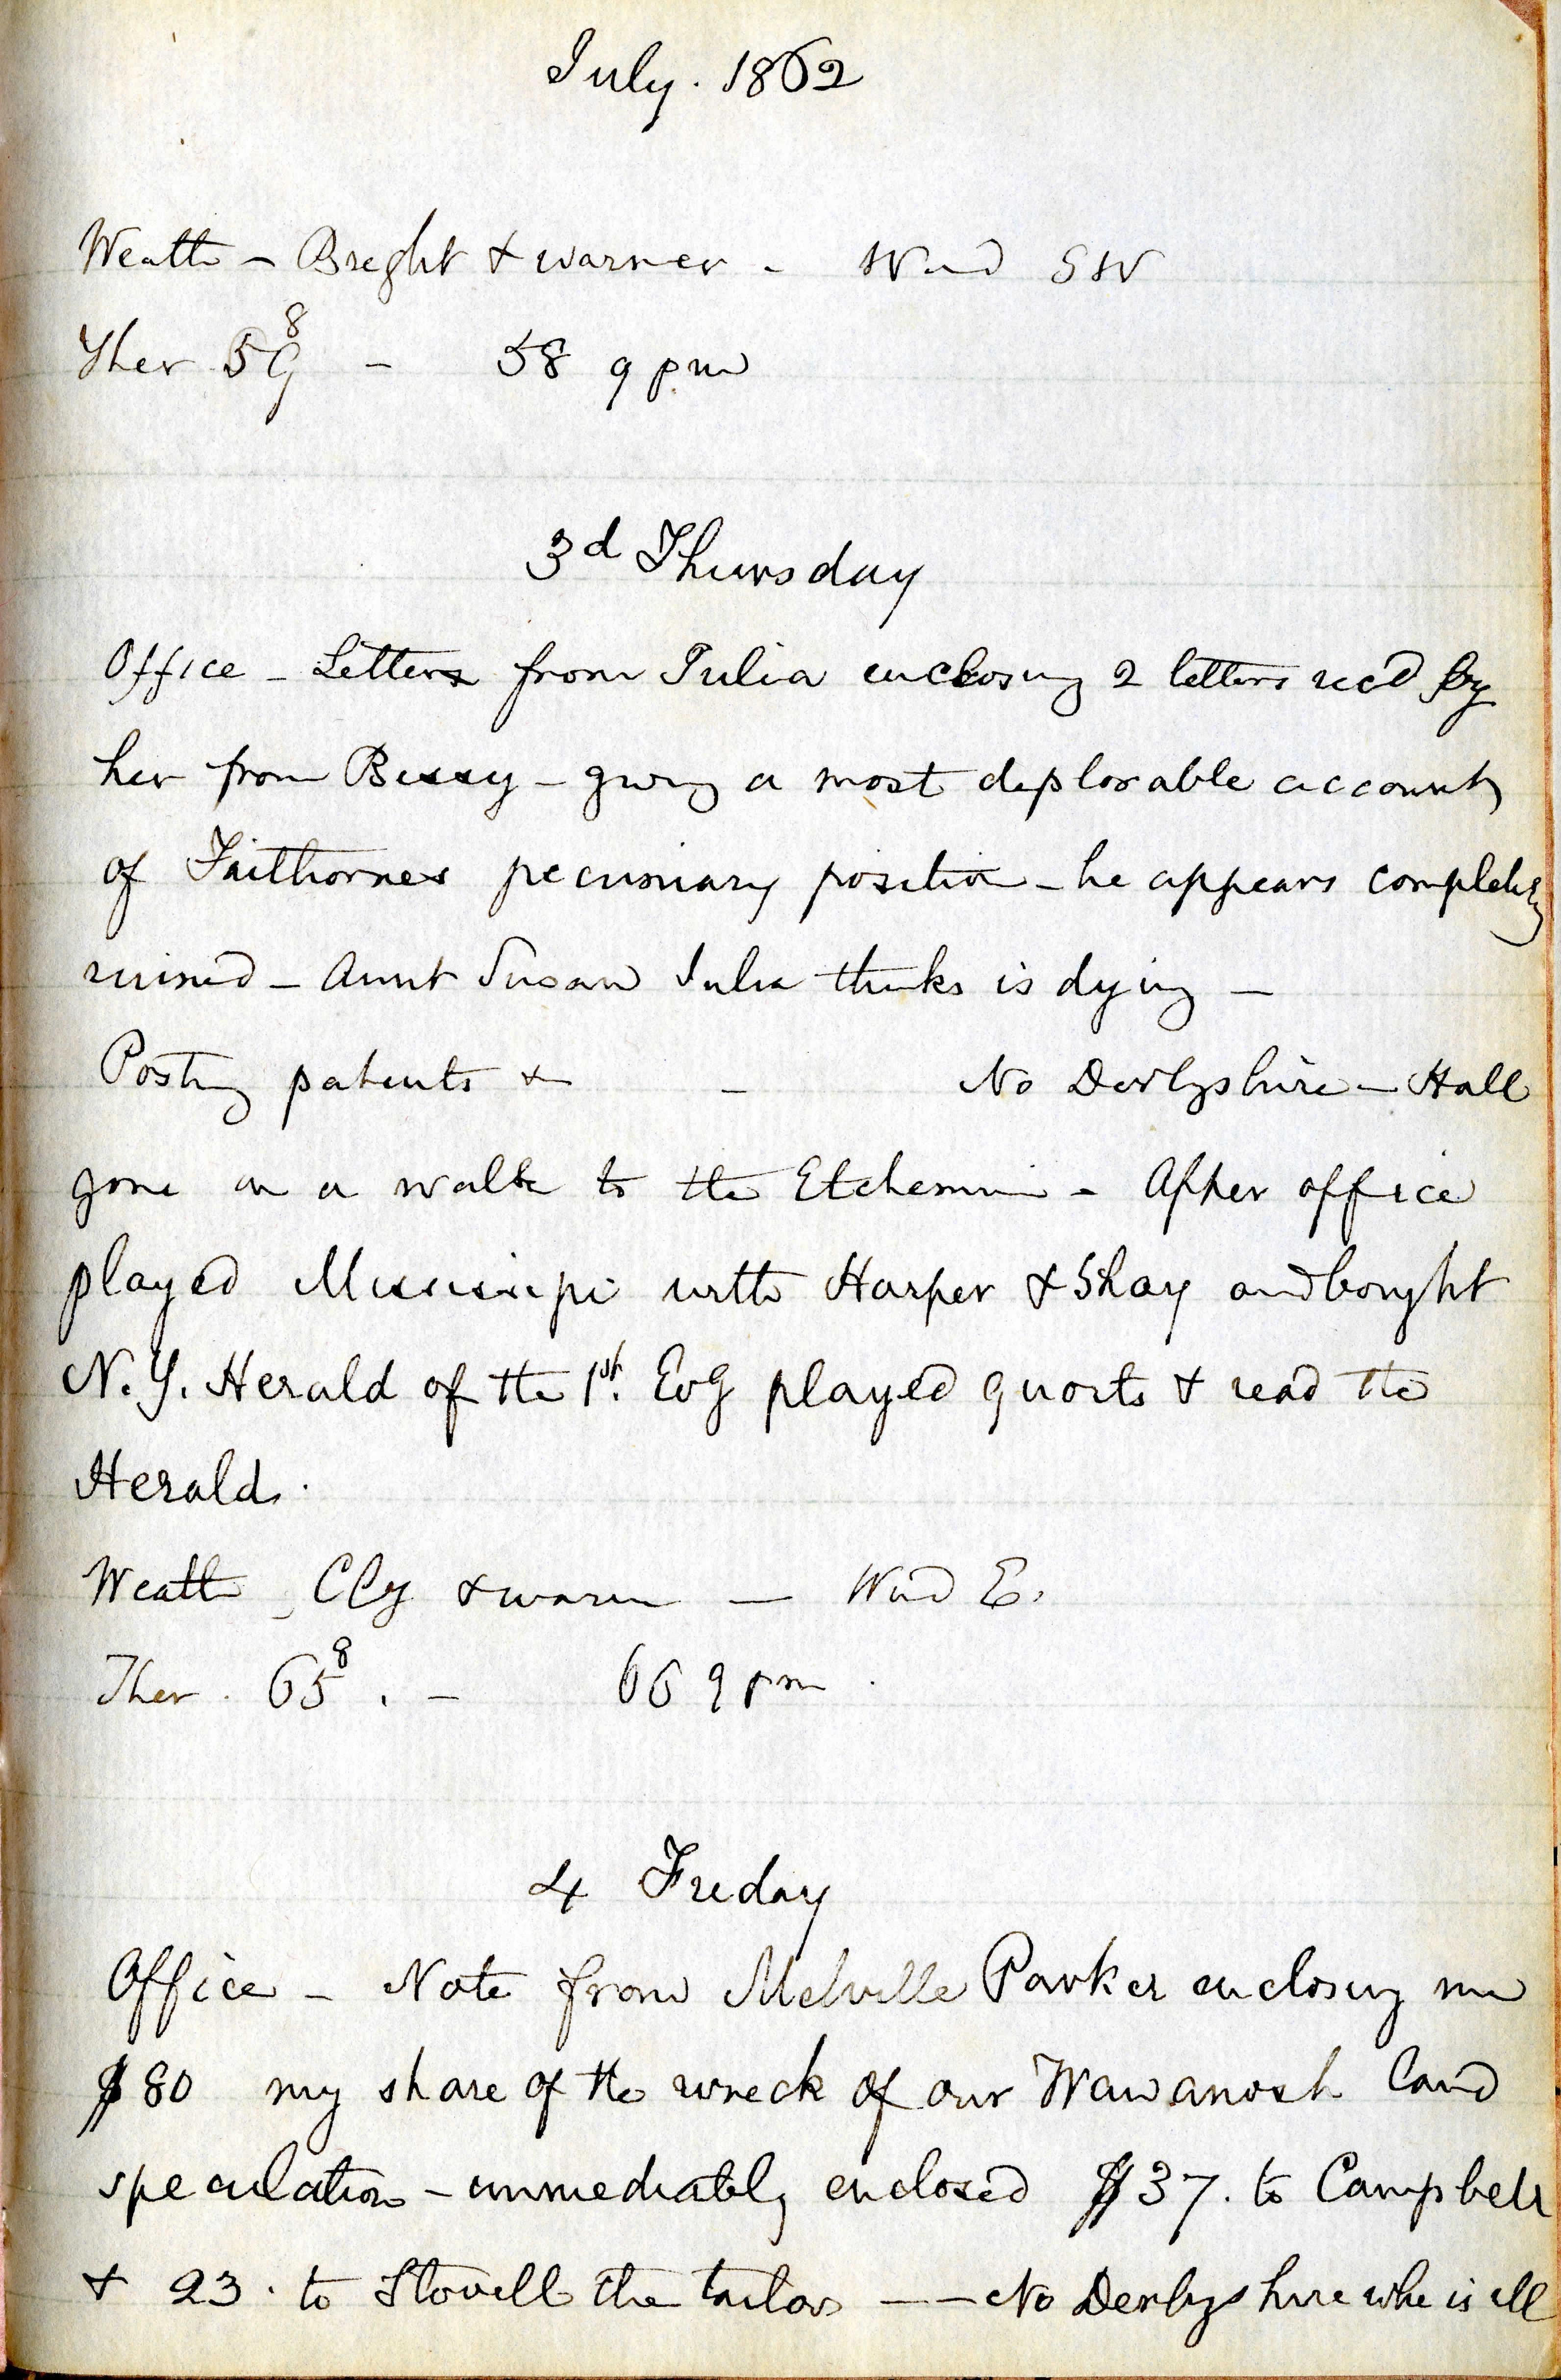 July. 1862
Weath - Bright & warmer - Wind SW
Ther 59 8 - 58 9 pm
3d Thursday
Office - Letters from Julia enclosing 2 letters recd by
her from Bessy - giving a most deplorable account
of Faithornes pecuniary position - he appears completely
ruined - Aunt Susan Julia thinks is dying -
Posting patents & - No Derbyshire - Hall
gone on a walk to the Etchemin - After office
played Mississipi with Harper & Shay and bought
N.Y. Herald of the 1st. Evg played quoits & read the
Herald.
Weath Cly & warm - Wind E.
Ther. 65 8. - 66 9 pm
4 Friday
Office - Note from Melville Parker enclosing me
$80 my share of the wreck of our Wawanosh land
speculation - immediately enclosed $37. to Campbell
& 23. to Stovell the tailor -- No Derbyshire who is ill